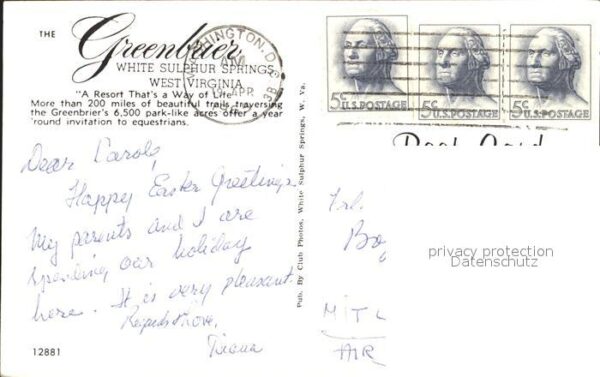 THE
Greenbrier
WHITE SULPHUR SPRINGS
WEST VIRGINIA
"A Resort That's a Way of Life"
More than 200 miles of beautiful trails traversing
the Greenbrier's 6,500 park-like acres offer a year
'round invitation to equestrians.
WASHINGTON, D.C.
AM
APR
5c
U.S. POSTAGE
5c
U.S. POSTAGE
5c
U.S. POSTAGE
Post Card
Dear Carole,
Happy Easter Greetings.
My parents and I are
spending our holiday
here. It is very pleasant.
Regards & love,
Diana
12881
Pub. By Club Photos, White Sulphur Springs, W. Va.
Frl.
privacy protection
Datenschutz
MIT
AIR